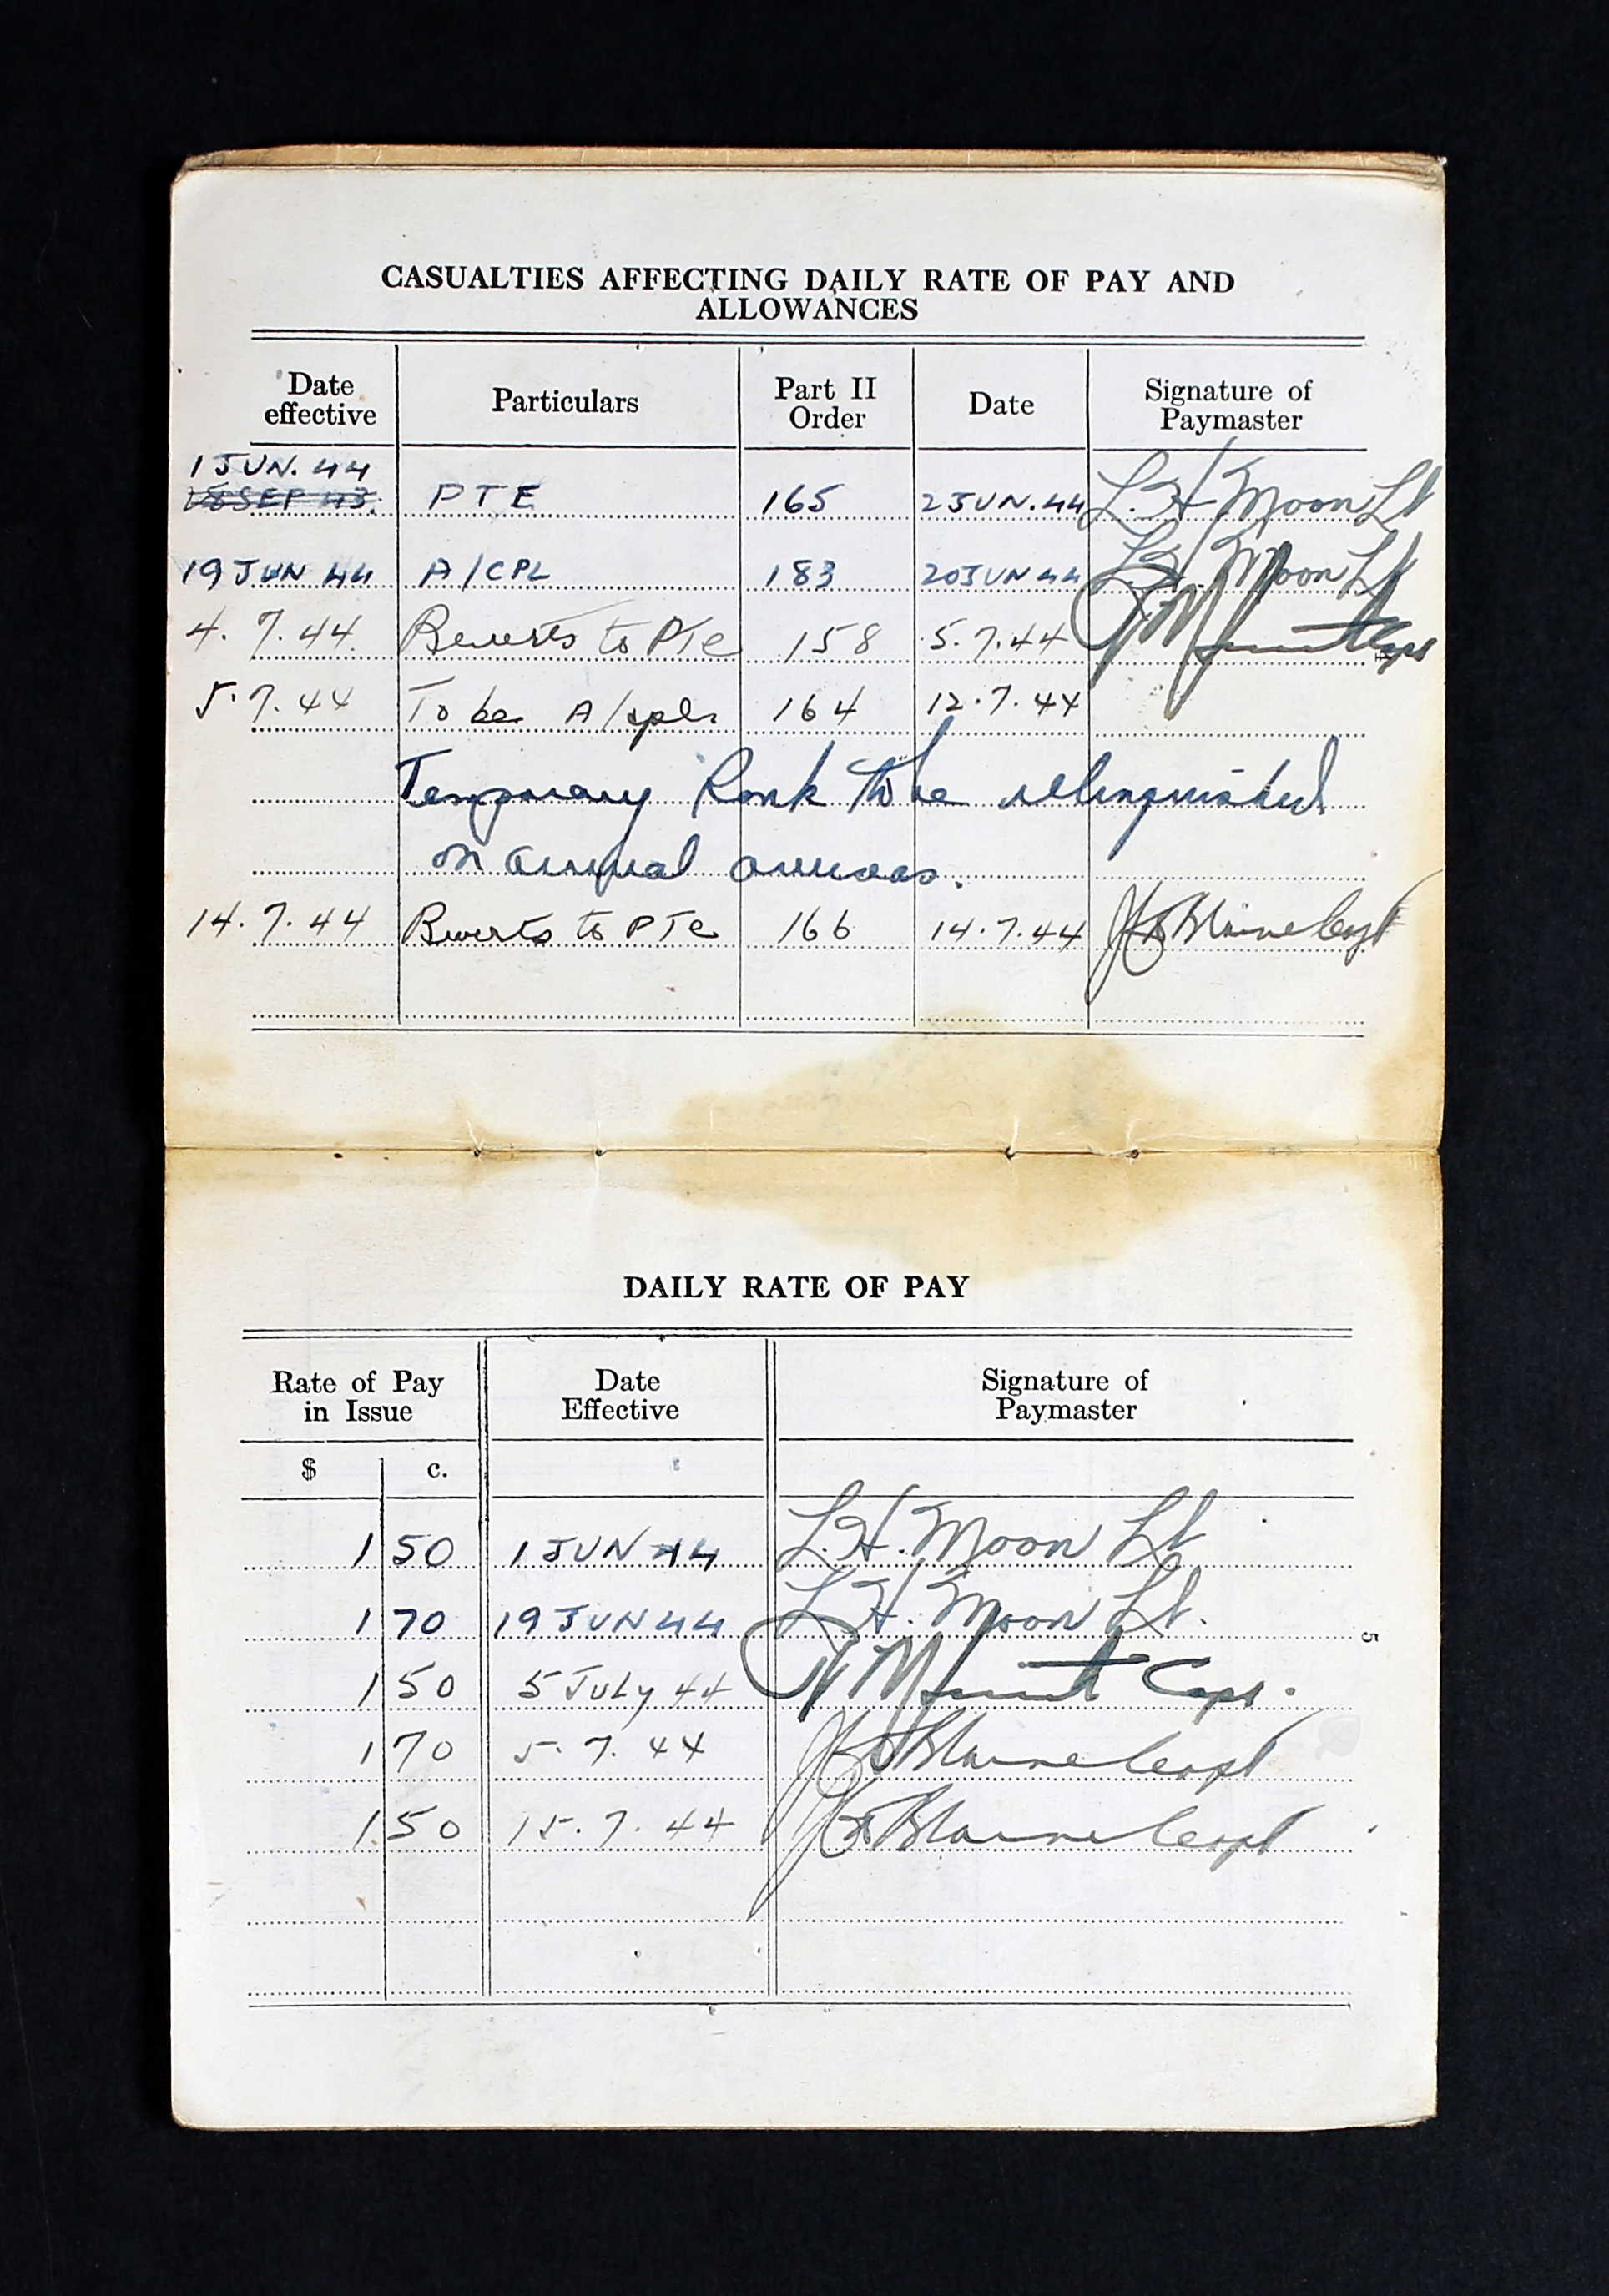 CASUALTIES AFFECTING DAILY RATE OF PAY AND
ALLOWANCES
Date effective Particulars Part II Order Date Signature of Paymaster
1 JUN. 44
18 SEP 43. PTE 165 2 JUN. 44 L. H. Moon Lt
19 JUN 44 A/CPL 183 20 JUN 44 L. H. Moon Lt
4. 7. 44 Reverts to Pte 158 5. 7. 44 Capt
5. 7. 44 To be A/cpl. 164 12. 7. 44
Temporary Rank to be relinquished
on arrival overseas.
14. 7. 44 Reverts to PTe 166 14. 7. 44 Blaine Capt
DAILY RATE OF PAY
Rate of Pay in Issue Date Effective Signature of Paymaster
$ c.
1 50 1 JUN 44 L. H. Moon Lt
1 70 19 JUN 44 L. H. Moon Lt.
1 50 5 JULY 44 Capt.
1 70 5. 7. 44 Blaine Capt
1 50 15. 7. 44 Blaine Capt
5